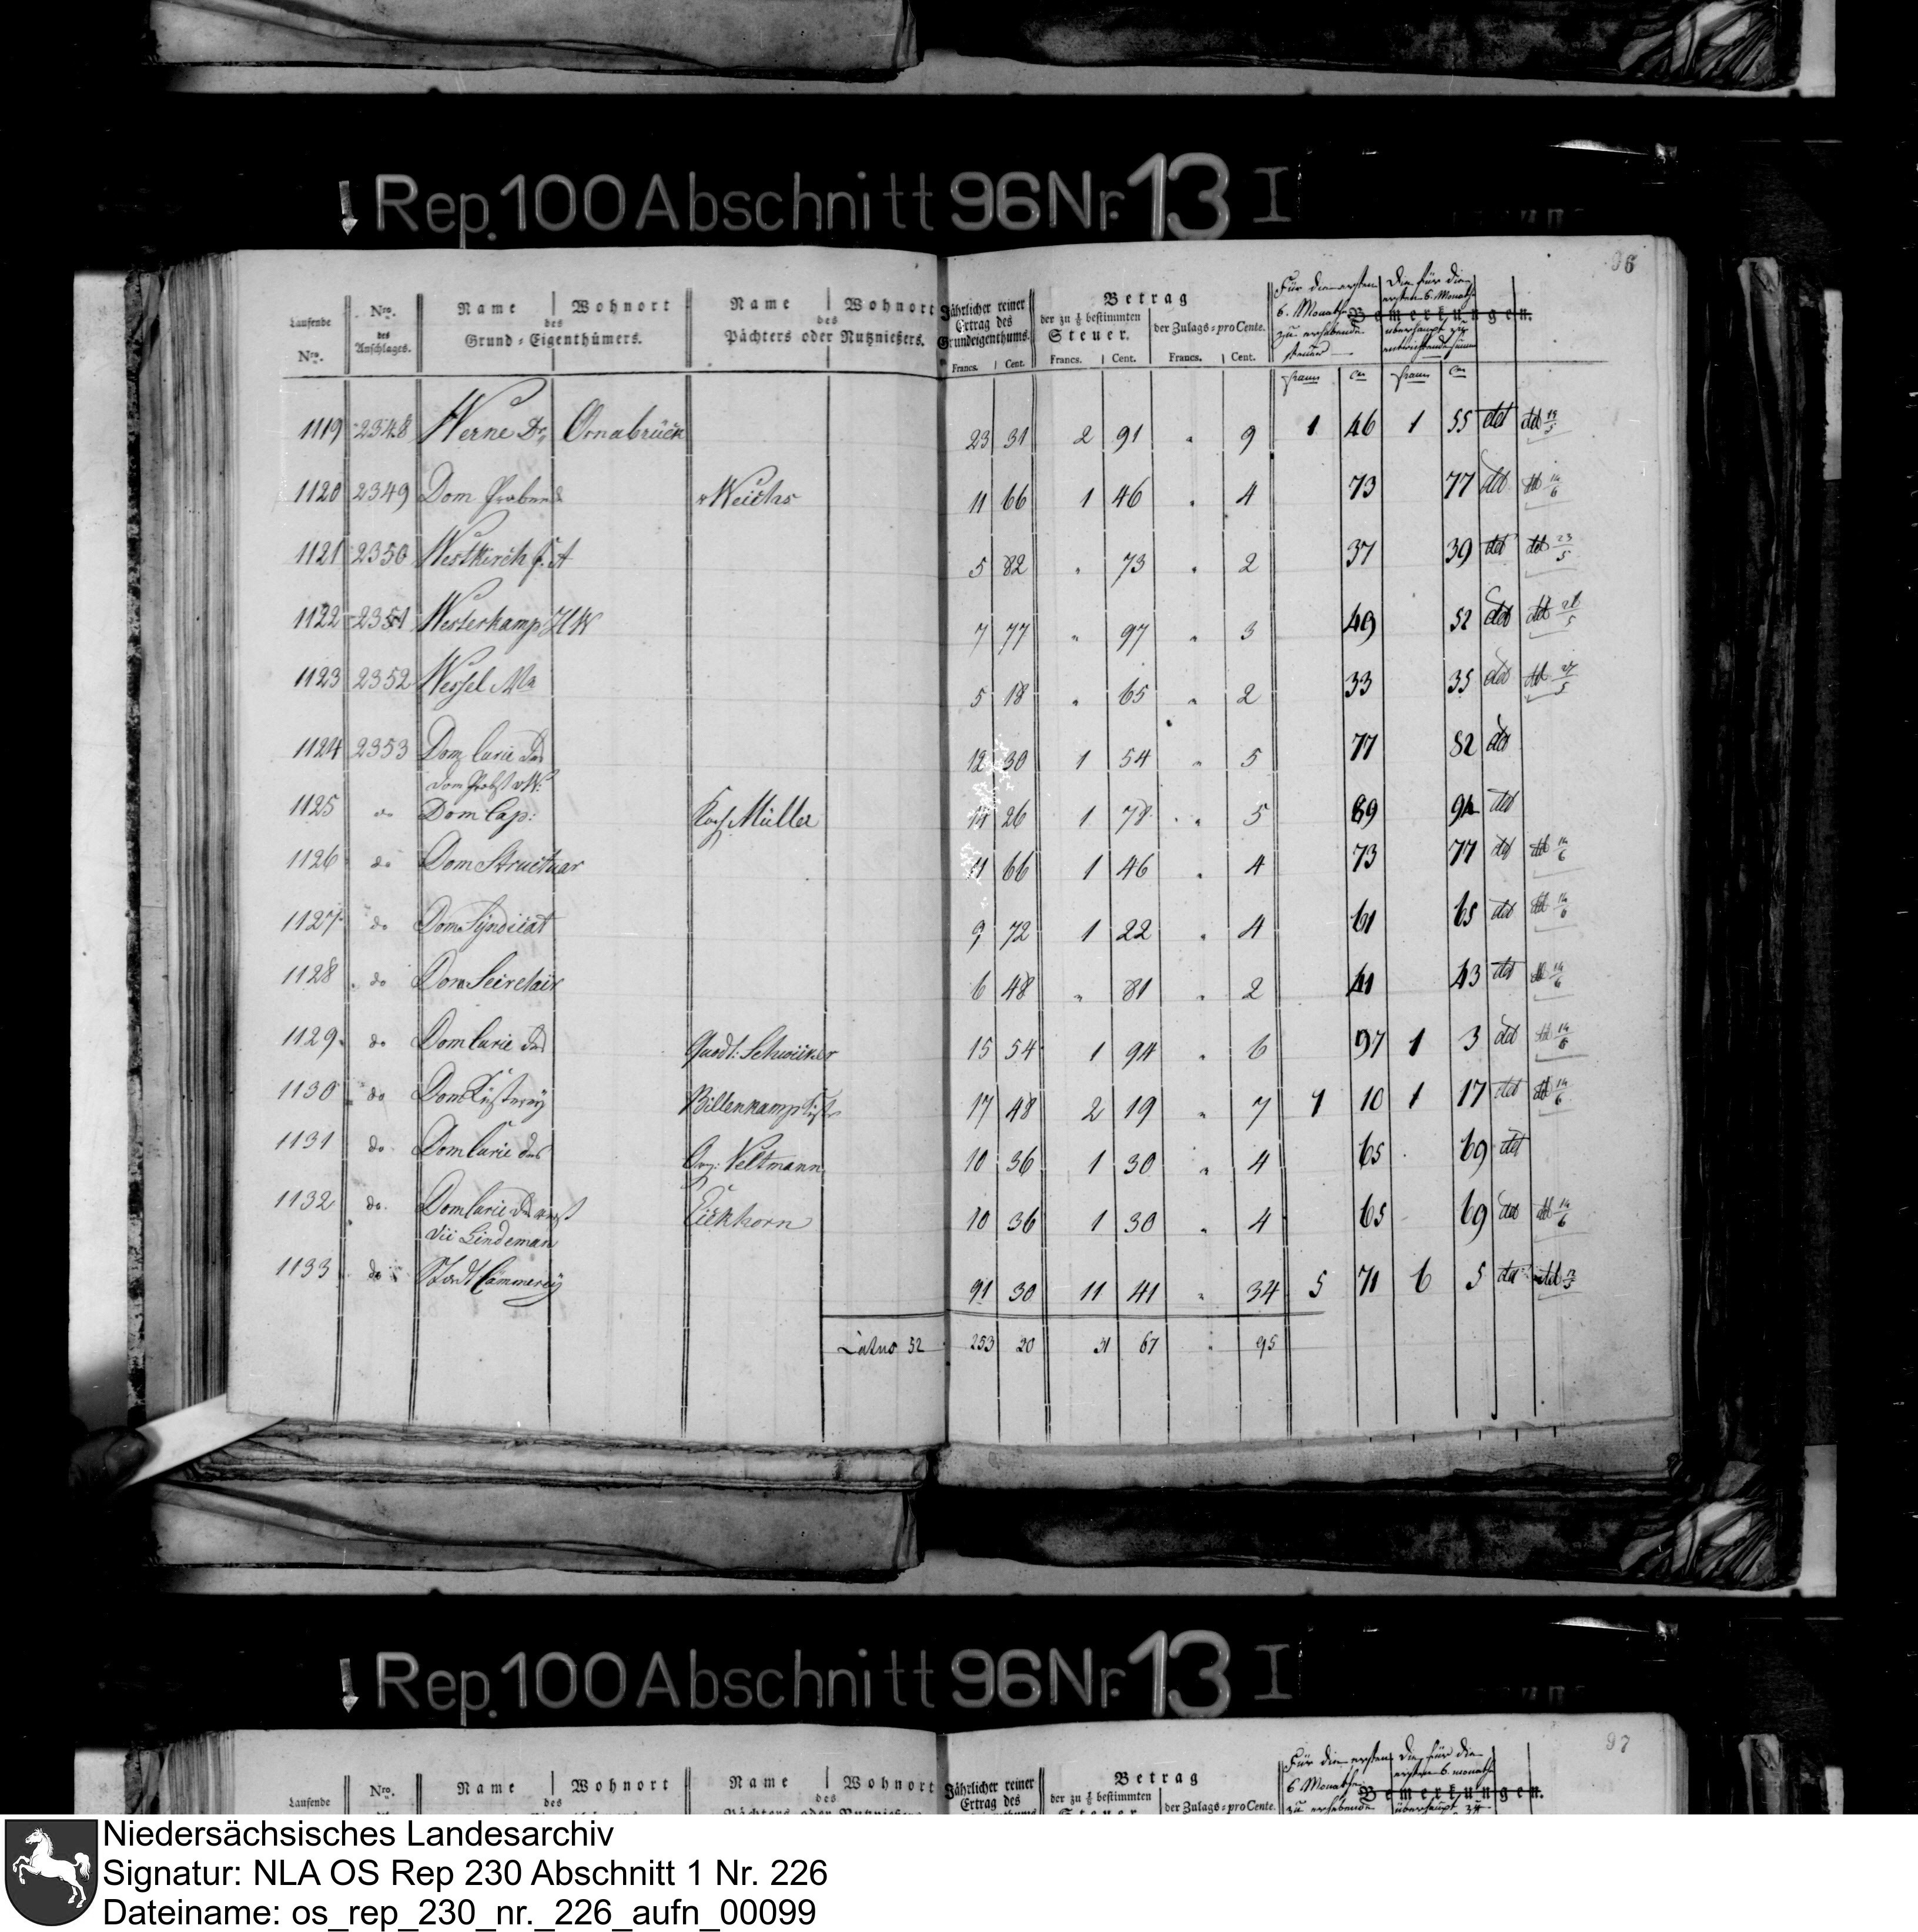 Rep. 100 Abschnitt 96 Nr. 13 I
96
Laufende Nro.
Nro. des Anschlages.
Name | Wohnort
des
Grund-Eigenthümers.
Name | Wohnort
des
Pächters oder Nutznießers.
Jährlicher reiner Ertrag des Grundeigenthums.
Francs. | Cent.
Betrag
der zu 1/8 bestimmten Steuer.
Francs. | Cent.
der Zulags-pro Cente.
Francs. | Cent.
Für die ersten 6. Monathe zu erhebende Steuer
Die für die ersten 6. Monathe überhaupt zu entrichtende Summe
Bemerkungen.
1119 2348 Werne Dr. Osnabrück 23 31 2 91 " 9 1 46 1 55 det det 13/5
1120 2349 Dom Praebend v Weichs 11 66 1 46 " 4 73 77 det det 14/6
1121 2350 Westkirch F. A 5 82 " 73 " 2 37 39 det det 23/5
1122 2351 Westerkamp H W 7 77 " 97 " 3 49 52 det det 5
1123 2352 Wessel Ma 5 18 " 65 " 2 33 35 det det 5
1124 2353 Dom Curie des 12 30 1 54 " 5 77 82 det
Dom Probst v W.
1125 do Dom Cap: Müller 14 26 1 78 " 5 89 94 det
1126 do Dom Structuar 11 66 1 46 " 4 73 77 det det 14/6
1127 do Dom Syndicat 9 72 1 22 " 4 61 65 det det 14/6
1128 do Dom Secretair 6 48 " 81 " 2 41 43 det det 14/6
1129 do Dom Curie des 15 54 1 94 " 6 97 1 3 det det 14/6
1130 do Dom Küsterey Billenkamp 17 48 2 19 " 7 1 10 1 17 det det 14/6
1131 do Dom Curie des Org. Veltmann 10 36 1 30 " 4 65 69 det
1132 do Dom Curie Eickhorn 10 36 1 30 " 4 65 69 det det 14/6
Vic Lindeman
1133 do Stadt Cämmerey 91 30 11 41 " 34 5 71 6 5 det det
Latus 52 253 20 31 67 " 95
Rep. 100 Abschnitt 96 Nr. 13 I
97
Laufende
Nro.
Name | Wohnort
des
Name | Wohnort
des
Pächters oder Nutznießers
Jährlicher reiner Ertrag des
Betrag
der zu 1/8 bestimmten
der Zulags-pro Cente.
Für die ersten 6 Monathe zu erhebende
Die für die ersten 6. monathe überhaupt zu
Bemerkungen.
Niedersächsisches Landesarchiv
Signatur: NLA OS Rep 230 Abschnitt 1 Nr. 226
Dateiname: os_rep_230_nr._226_aufn_00099